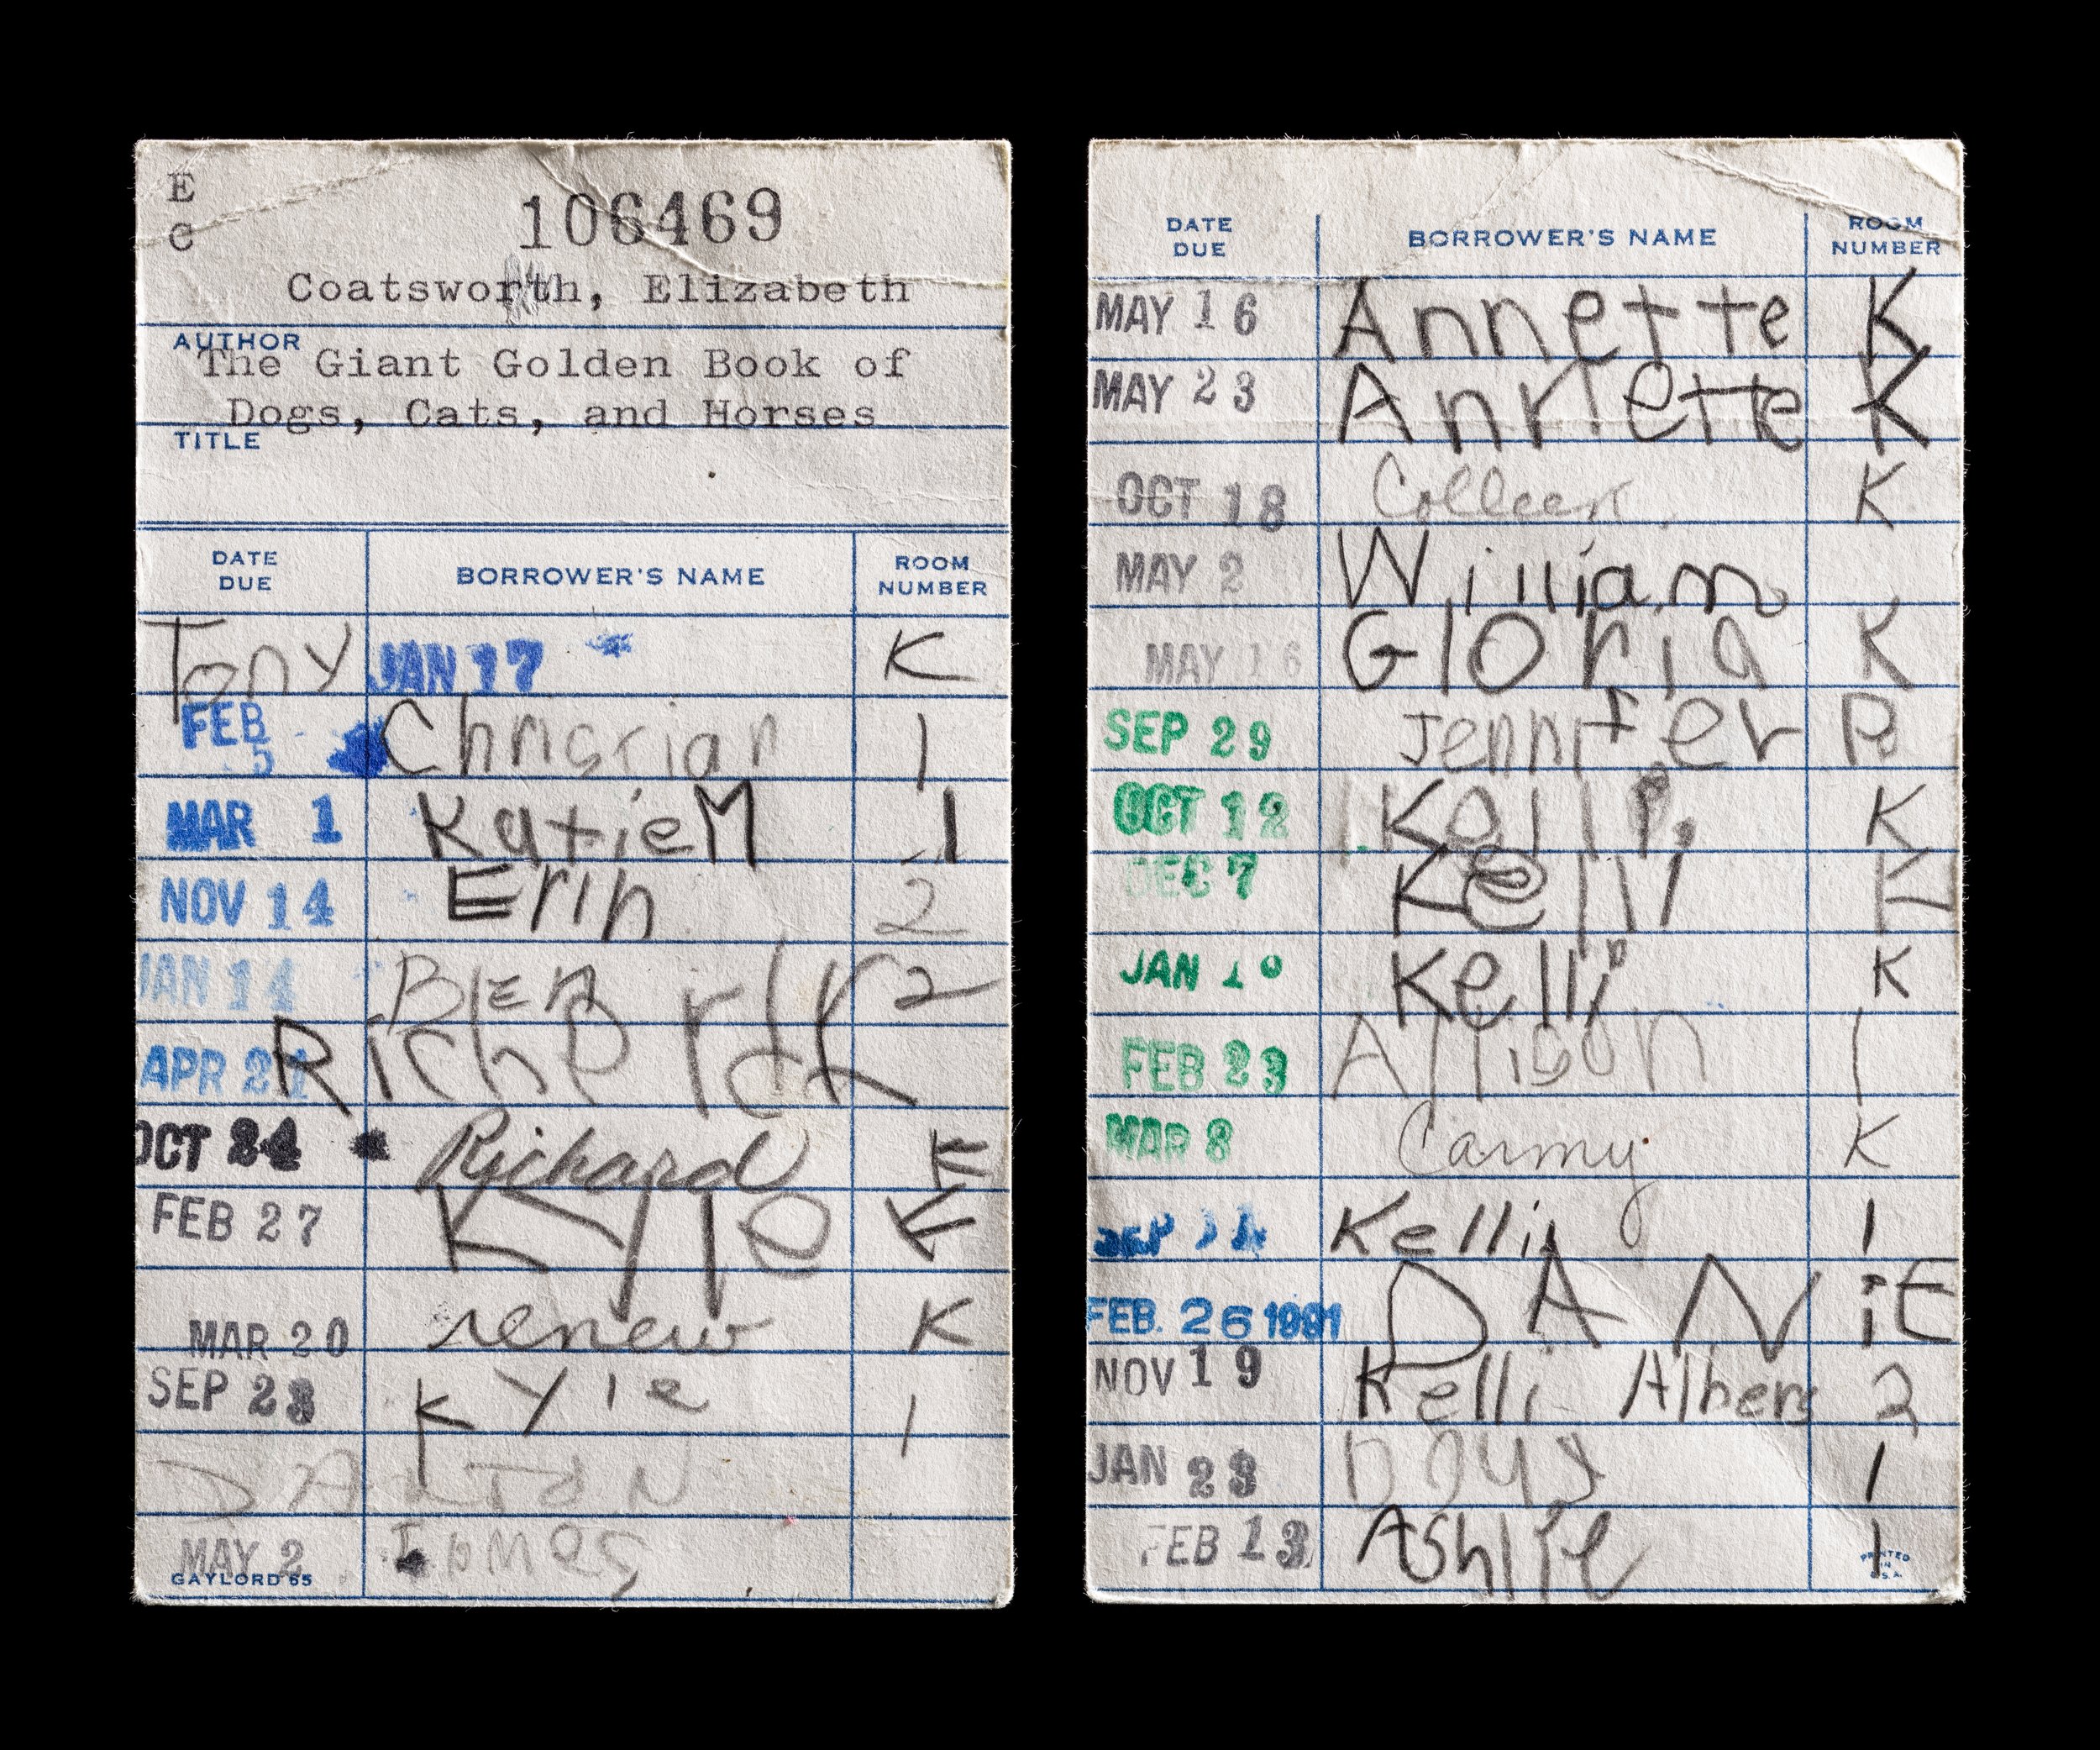 E
C
106469
Coatsworth, Elizabeth
AUTHOR
The Giant Golden Book of
Dogs, Cats, and Horses
TITLE
DATE DUE BORROWER'S NAME ROOM NUMBER
Tony JAN 17 K
FEB 5 Christian 1
MAR 1 Katie M 1
NOV 14 Erin 2
JAN 14 2
APR 21 Richerd
OCT 24 Richard K
FEB 27 Kyle K
MAR 20 renew K
SEP 28 Kyle 1
DALTON
MAY 2 James
GAYLORD 65
DATE DUE BORROWER'S NAME ROOM NUMBER
MAY 16 Annette K
MAY 23 Annette K
OCT 18 Colleen K
MAY 2 William
MAY 16 Gloria K
SEP 29 Jennifer P
OCT 12 Kelli K
DEC 7 Kelli K
JAN 10 Kelli K
FEB 23 Allison 1
MAR 8 Carmy K
SEP 11 Kelli 1
FEB. 26 1991 DANiE
NOV 19 Kelli Albers 2
JAN 23 1
FEB 13 Ashlie 1
PRINTED
IN
U.S.A.